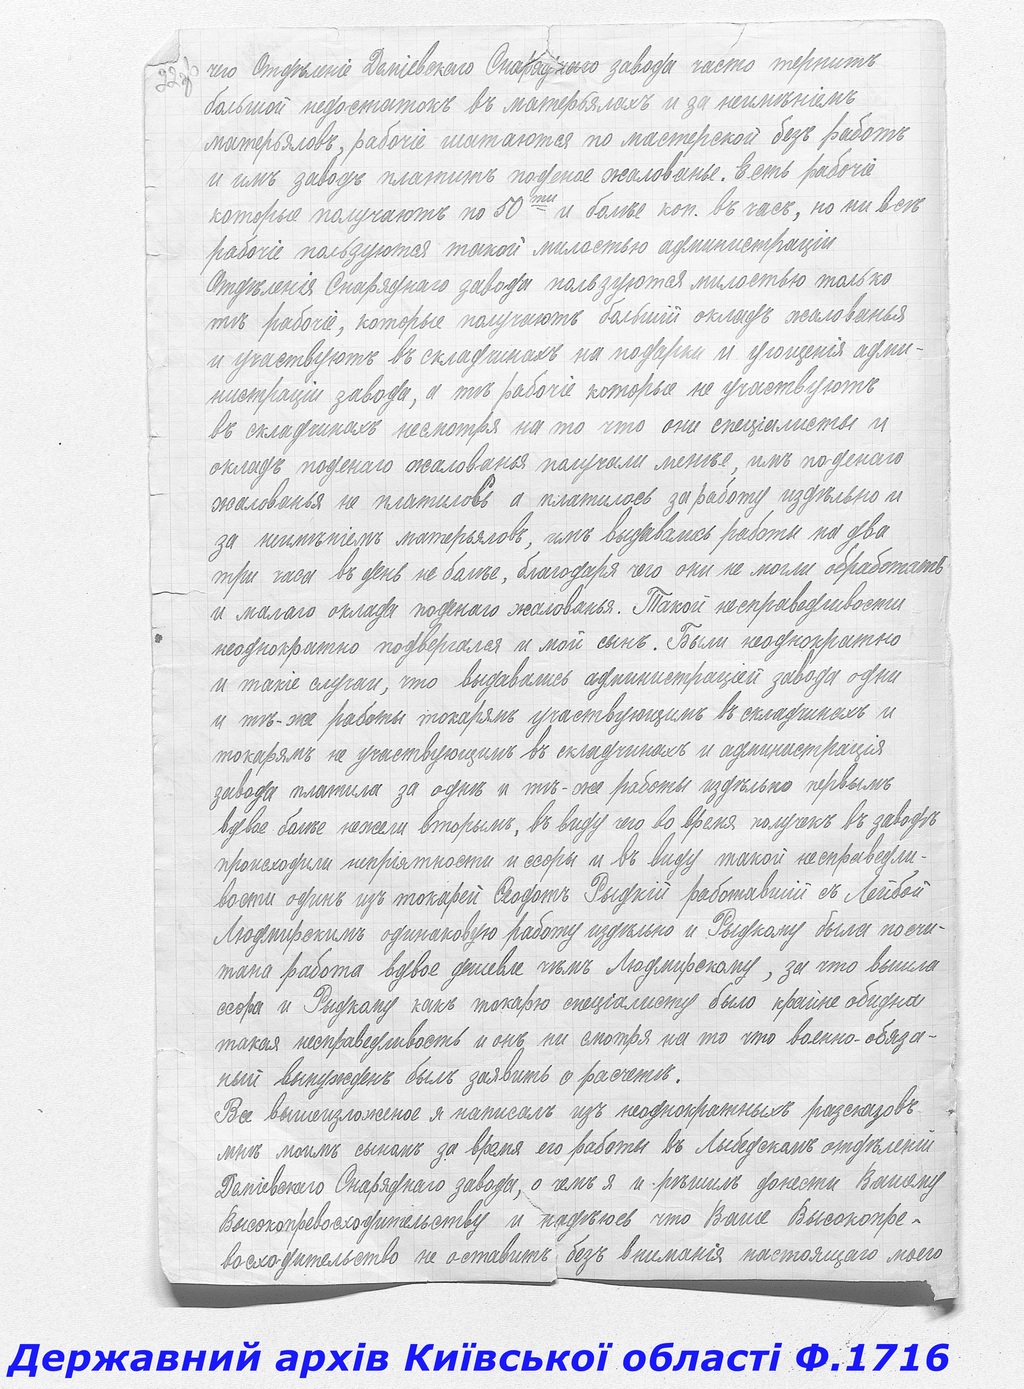 чего Отдѣленіе Даніевскаго Снаряднаго завода часто терпитъ
большой недостатокъ въ матерьялахъ и за неимѣніемъ
матерьяловъ, рабочіе шатаются по мастерской безъ работъ
и имъ заводъ платитъ поденое жалованье. Есть рабочіе
которые получаютъ по 50ти и болѣе коп. въ часъ, но ни всѣ
рабочіе пользуются такой милостью администраціи
Отдѣленія Снаряднаго завода пользуются милостью только
тѣ рабочіе, которые получаютъ большій окладъ жалованья
и участвуютъ въ складчинахъ на подарки и угощенія адми-
нистраціи завода, а тѣ рабочіе которые не участвуютъ
въ складчинахъ несмотря на то что они спеціалисты и
окладъ поденаго жалованья получали менѣе, имъ по-денаго
жалованья не платилось а платилось за работу издѣльно и
за неимѣніемъ матерьяловъ, имъ выдавались работы на два
три часа въ день не болѣе, благодаря чего они не могли обработать
и малаго оклада поденаго жалованья. Такой несправедливости
неоднократно подвергался и мой сынъ. Были неоднократно
и такіе случаи, что выдавались администраціей завода одни
и тѣ-же работы токарямъ участвующимъ въ складчинахъ и
токарямъ не участвующимъ въ складчинахъ и администрація
завода платила за однѣ и тѣ-же работы издѣльно первымъ
вдвое болѣе нежели вторымъ, въ виду чего во время получекъ въ заводѣ
происходили непріятности и ссоры и въ виду такой несправедли-
вости одинъ изъ токарей Ѳеодотъ Рыдкій работавшій съ Лейбой
Людмирскимъ одинаковую работу издѣльно и Рыдкому была посчи-
тана работа вдвое дешевле чѣмъ Людмирскому, за что вышла
ссора и Рыдкому какъ токарю спеціалисту было крайне обидна
такая несправедливость и онъ ни смотря на то что военно-обяза-
ный вынужденъ былъ заявить о расчетѣ.
Все вышеизложеное я написалъ изъ неоднократныхъ разсказовъ
мнѣ моимъ сыномъ за время его работы въ Лыбедскомъ отдѣленій
Даніевскаго Снаряднаго завода, о чемъ я и рѣшилъ донести Вашему
Высокопревосходительству и надѣюсь что Ваше Высокопре-
восходительство не оставитъ безъ вниманія настоящаго моего
Державний архів Київської області Ф.1716